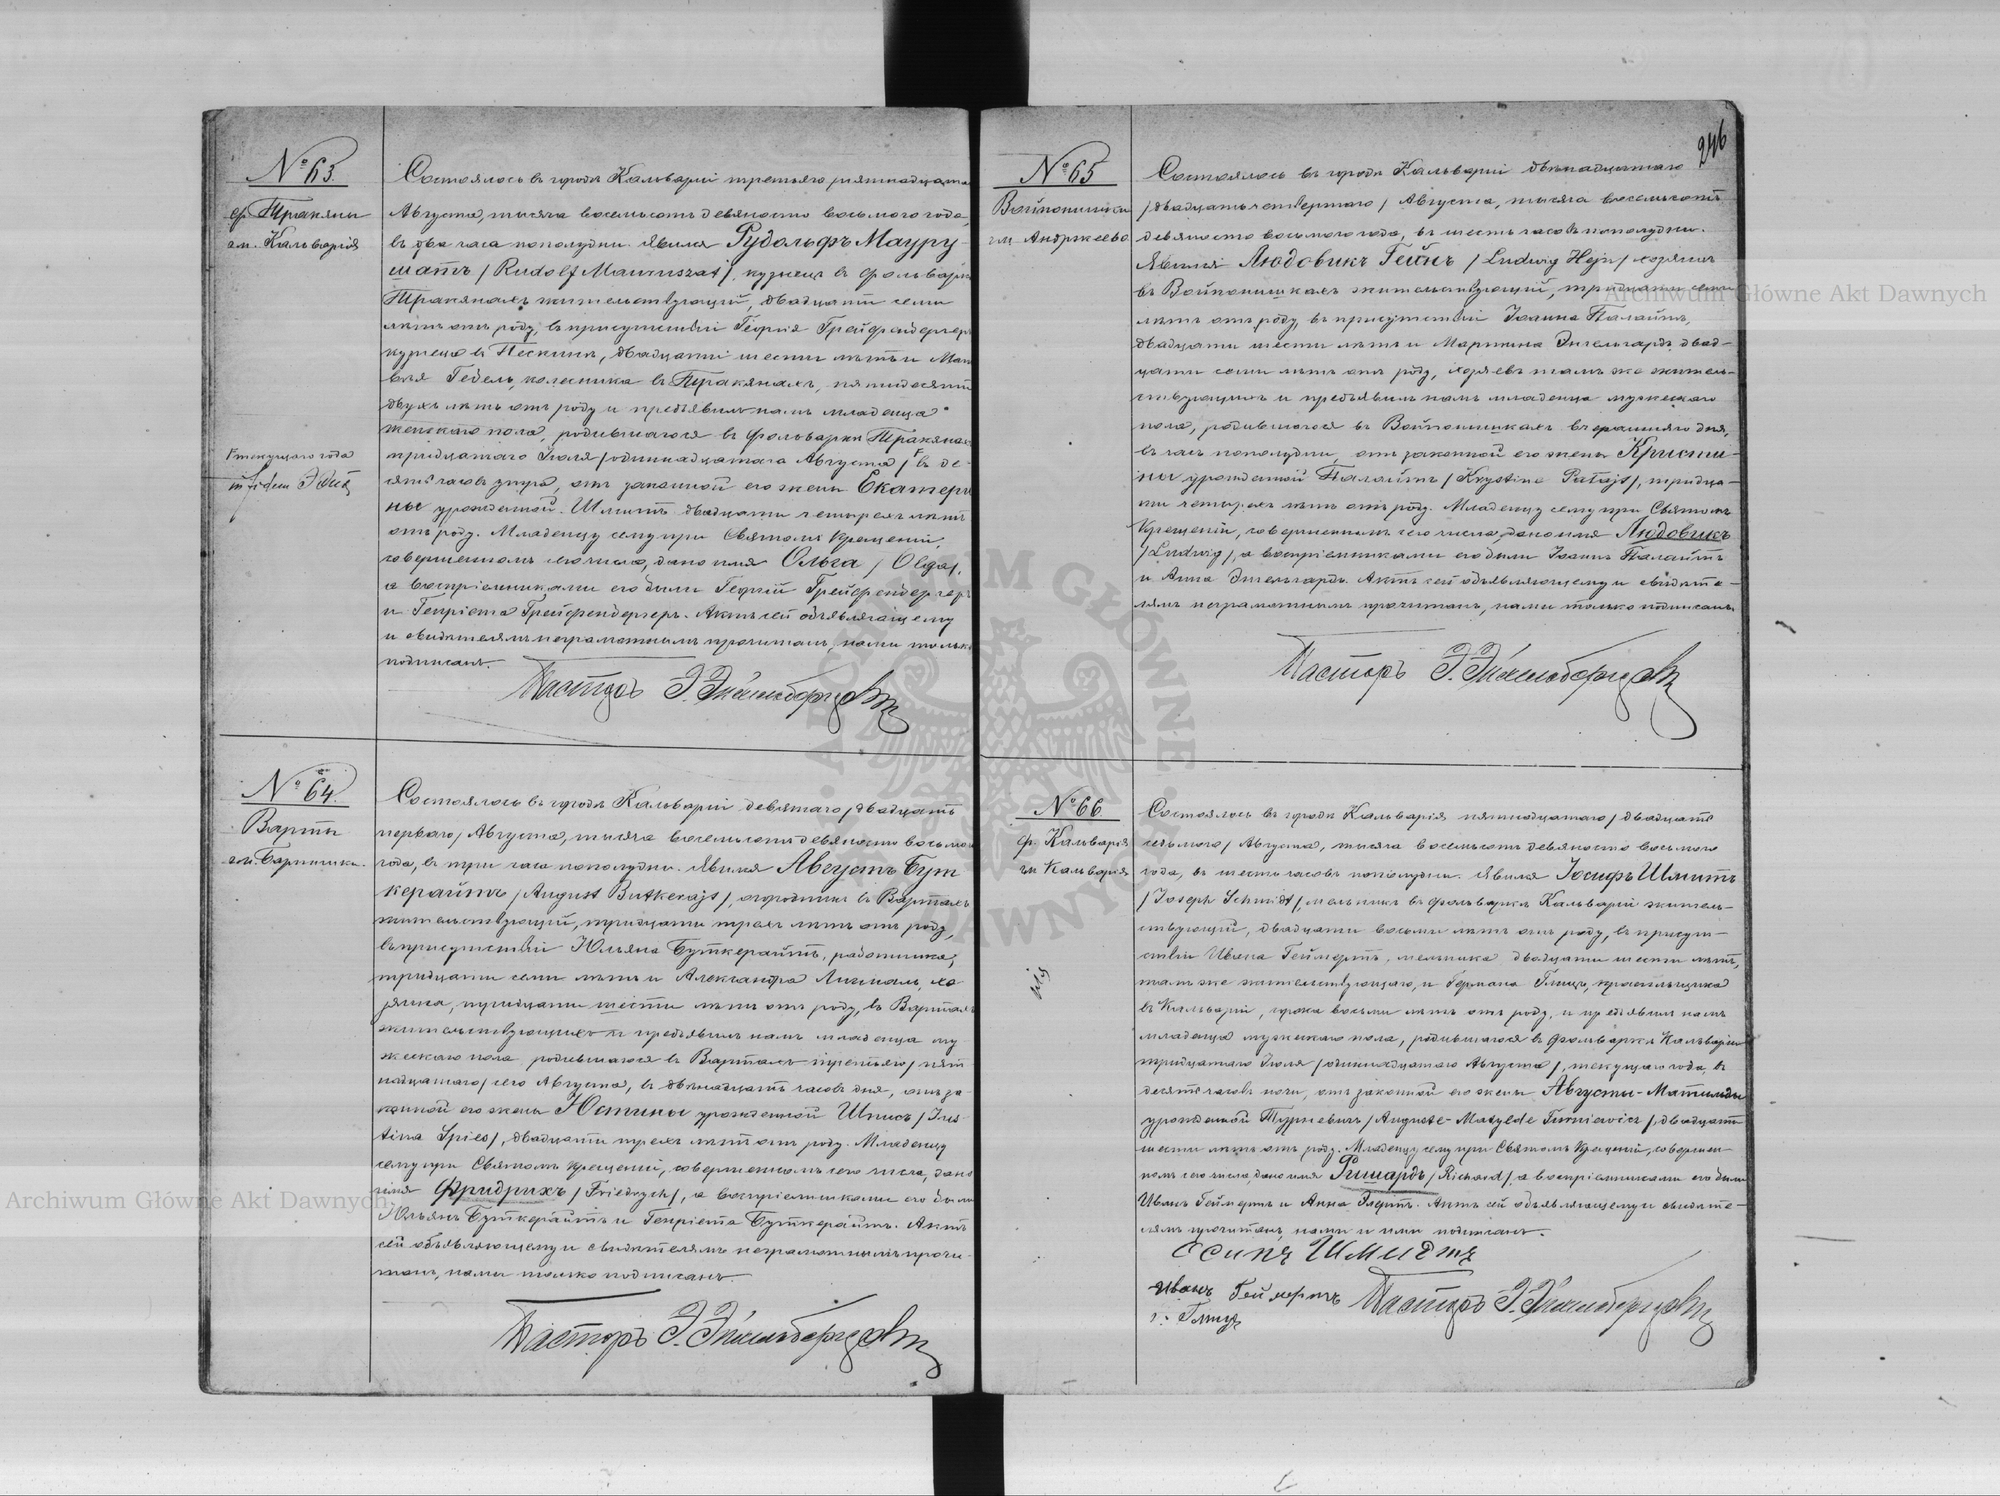 № 63.
ф. Тракяны
гм. Кальварія
Состоялось въ городѣ Кальваріи третьяго /пятнадцатаго
Августа, тысяча восемьсотъ девяносто восьмого года,
въ два часа пополудни. Явился Рудольфъ Мауру-
шатъ /Rudolf Mauruszat/, кузнецъ въ фольваркѣ
Тракянахъ жительствующій, двадцати семи
лѣтъ отъ роду, въ присутствіи Георгія Грейфендергеръ
кузнеца въ Пескинѣ, двадцати шести лѣтъ и Мат
вѣя Гедель, колесника въ Тракянахъ, пятидесяти
двухъ лѣтъ отъ роду и предъявилъ намъ младенца
женскаго пола, родившагося въ фольваркѣ Тракянахъ
тридцатаго Іюля /одиннадцатаго Августа/ Г въ де-
вять часовъ утра, отъ законной его жены Екатери
ны урожденной Шмитъ двадцати четырехъ лѣтъ
отъ роду. Младенцу сему при Святомъ Крещеніи,
совершенномъ сего числа, дано имя Ольга /Olga/,
а воспріемниками его были Георгій Грейфендергеръ
и Генріета Грейфендергеръ. Актъ сей объявляющему
и свидѣтелямъ неграмотнымъ прочитанъ, нами только
подписанъ.
Г текущаго года
in fidem
Пасторъ Э.
№ 64.
Варты
гм. Барнишки
Состоялось въ городѣ Кальваріи девятаго /двадцать
перваго/ Августа, тысяча восемьсотъ девяносто восьмого
года, въ три часа пополудни. Явился Августъ Бут
керайтъ /August Butkerajt/, огородникъ въ Вартахъ
жительствующій, тридцати трехъ лѣтъ отъ роду,
въ присутствіи Юльяна Буткерайтъ, работника,
тридцати семи лѣтъ и Александра Личналь, хо
зяина, тридцати шести лѣтъ отъ роду, въ Вартахъ
жительствующихъ и предъявилъ намъ младенца му
жескаго пола, родившагося въ Вартахъ третьяго /пят
надцатаго/ сего Августа, въ двѣнадцать часовъ дня, отъ за
конной его жены Юстины урожденной Шписъ /Jus
tina Spies/, двадцати трехъ лѣтъ отъ роду. Младенцу
сему при Святомъ Крещеніи, совершенномъ сего числа, дано
имя Фридрихъ /Friedrych/, а воспріемниками его были
Юльянъ Буткерайтъ и Генріета Буткерайтъ. Актъ
сей объявляющему и свидѣтелямъ неграмотнымъ прочи-
танъ, нами только подписанъ.
Пасторъ Э.
246
№ 65
Войпонишки
гм. Анджеево
Состоялось въ городѣ Кальваріи двѣнадцатаго
/двадцать четвертаго/ Августа, тысяча восемьсотъ
девяносто восьмого года, въ шесть часовъ пополудни.
Явился Людовикъ Гейнъ /Ludwig Hejn/ хозяинъ
въ Войпонишкахъ жительствующій, тридцати семи
лѣтъ отъ роду, въ присутствіи Іоанна Палайтъ,
двадцати шести лѣтъ и Мартина Энгельгардъ двад-
цати семи лѣтъ отъ роду, хозяевъ тамъ же житель-
ствующихъ и предъявилъ намъ младенца мужескаго
пола, родившагося въ Войпонишкахъ вчерашняго дня,
въ часъ пополудни, отъ законной его жены Кристи-
ны урожденной Палайтъ /Krystine Pałajt/, тридца-
ти четырехъ лѣтъ отъ роду. Младенцу сему при Святомъ
Крещеніи, совершенномъ сего числа, дано имя Людовикъ
/Ludwig/, а воспріемниками его были Іоаннъ Палайтъ
и Анна Энгельгардъ. Актъ сей объявляющему и свидѣте-
лямъ неграмотнымъ прочитанъ, нами только подписанъ.
Пасторъ Э.
№ 66
ф. Кальварія
гм. Кальварія
Состоялось въ городѣ Кальварія пятнадцатаго /двадцать
седьмого/ Августа, тысяча восемьсотъ девяносто восьмого
года, въ шесть часовъ пополудни. Явился Іосифъ Шмитъ
/Joseph Schmidt/, мельникъ въ фольваркѣ Кальваріи житель-
ствующій, двадцати восьми лѣтъ отъ роду, въ присут-
ствіи Ивана Геймертъ, мельника двадцати шести лѣтъ,
тамъ же жительствующаго, и Германа Глицъ, красильщика
въ Кальваріи, сорока восьми лѣтъ отъ роду, и предъявилъ намъ
младенца мужескаго пола, родившагося въ фольваркѣ Кальваріи
тридцатаго Іюля /одиннадцатаго Августа/, текущаго года, въ
десять часовъ ночи, отъ законной его жены Августы-Матильды
урожденной Турневичъ /Auguste-Matylde Turniewicz/, двадцати
шести лѣтъ отъ роду. Младенцу сему при Святомъ Крещеніи, совершен-
номъ сего числа, дано имя Ришардъ /Richard/, а воспріемниками его были
Иванъ Геймертъ и Анна Эдертъ. Актъ сей объявляющему и свидѣте-
лямъ прочитанъ, нами и ими подписанъ.
Осипъ Шмидтъ
Иванъ Геймертъ
Г. Глицъ
Пасторъ Э.
Archiwum Główne Akt Dawnych
Archiwum Główne Akt Dawnych
ARCHIWUM GŁÓWNE AKT DAWNYCH